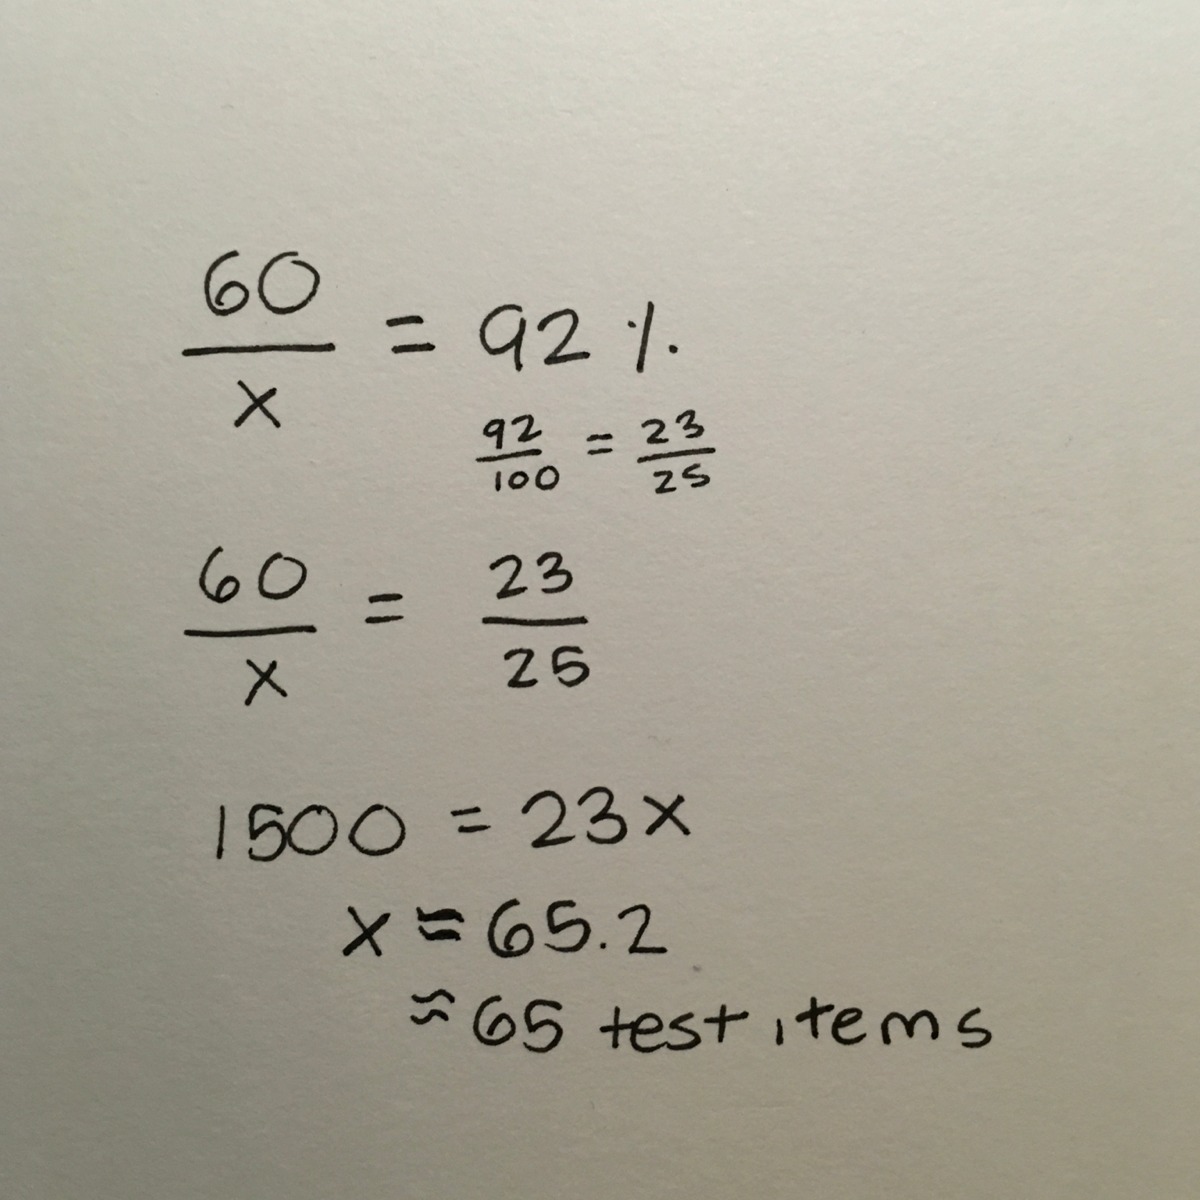 60/x = 92 %
92/100 = 23/25
60/x = 23/25
1500 = 23x
x ≈ 65.2
≈ 65 test items